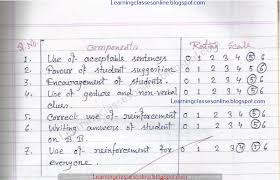 Learningclassesonline.blogspot.com
Sl. No. Components Rating Scale
1. Use of acceptable sentences 0 1 2 3 4 5 6
2. Favour of student suggestion 0 1 2 3 4 5 6
3. Encouragement of students. 0 1 2 3 4 5 6
4. Use of gesture and non-verbal 0 1 2 3 4 5 6
clues. Learningclassesonline.blogspot.com
5. Correct use of reinforcement 0 1 2 3 4 5 6
6. Writing answers of student 0 1 2 3 4 5 6
on B.B.
7. Use of reinforcement for 0 1 2 3 4 5 6
everyone.
Learningclassesonline.blogspot.com